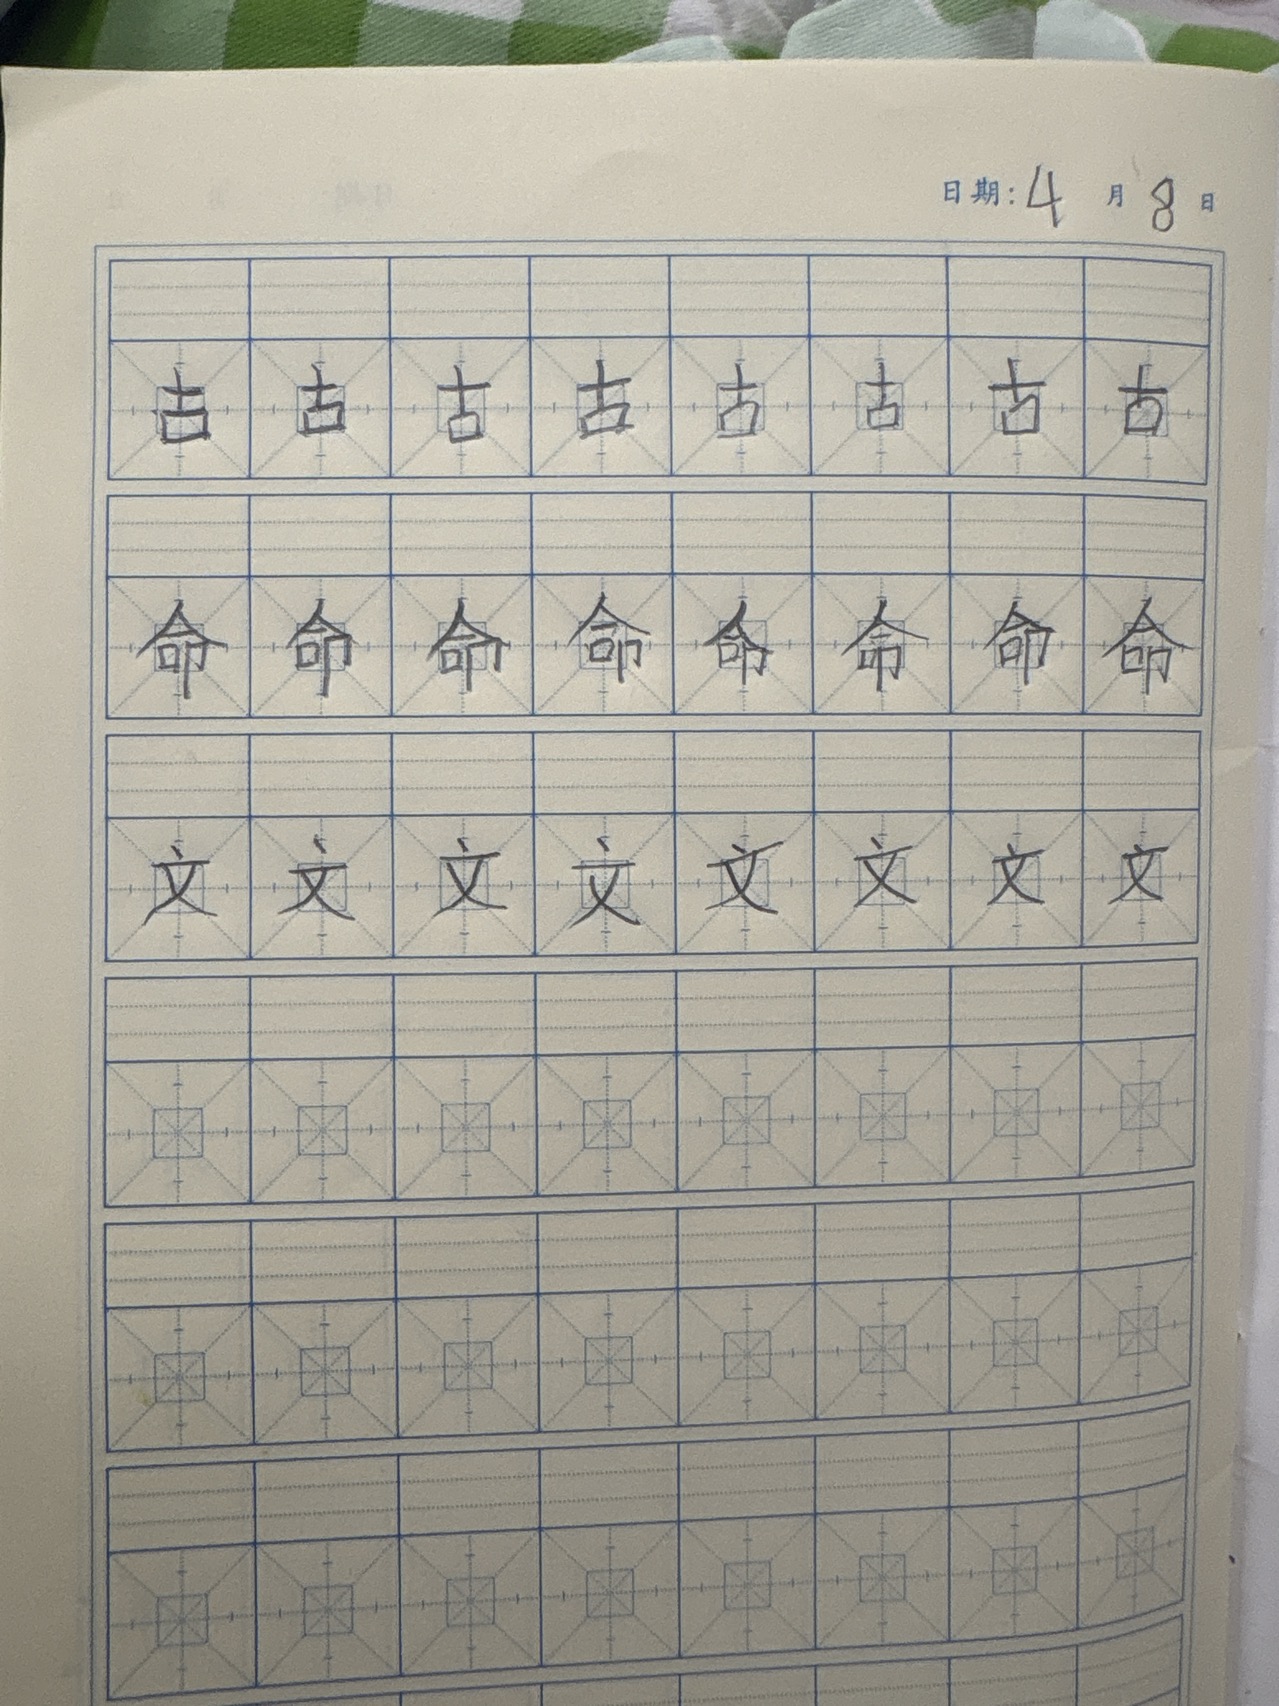 日期:4月8日
古古古古古古古古
命命命命命命命命
文文文文文文文文